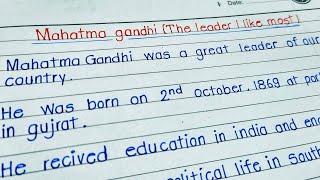 Date:
Mahatma gandhi (The leader I like most)
Mahatma Gandhi was a great leader of our
country.
He was born on 2nd october. 1869 at
in gujrat.
He recived education in india and
political life in south